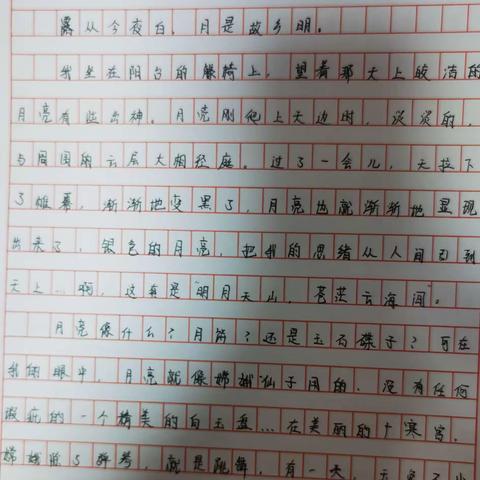 露从今夜白,月是故乡明。
我坐在阳台的躺椅上,望着那天上皎洁的
月亮有些出神。月亮刚爬上天边时,淡淡的,
与周围的云层大相径庭。过了一会儿,天拉下
了帷幕,渐渐地变黑了,月亮也就渐渐地显现
出来了,银色的月亮,把我的思绪从人间引到
天上…啊,这真是"明月天山,苍茫云海间"。
月亮像什么?月饼?还是玉石碟子?可在
我的眼中,月亮就像嫦娥仙子用的,没有任何
瑕疵的一个精美的白玉盘…在美丽的广寒宫,
嫦娥除了弹琴,就是跳舞,有一天,